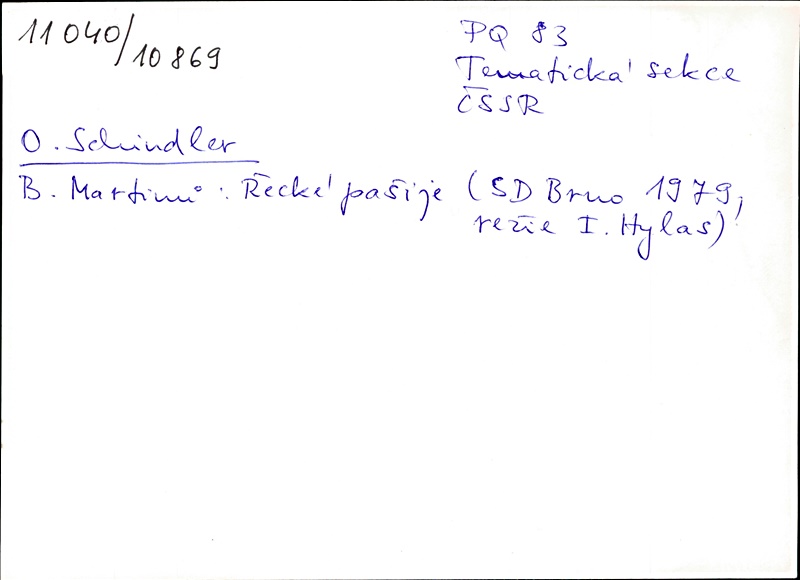 11 040/10 869
PQ 83
Tematická sekce
ČSSR
O. Schindler
B. Martinů: Řecké pašije (SD Brno 1979,
režie I. Hylas)